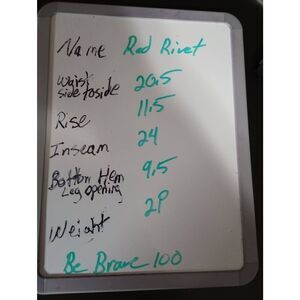 Name Red Rivet
Waist side to side 20.5
Rise 11.5
Inseam 24
Bottom Hem Leg opening 9.5
Weight 2P
Be Brave 100